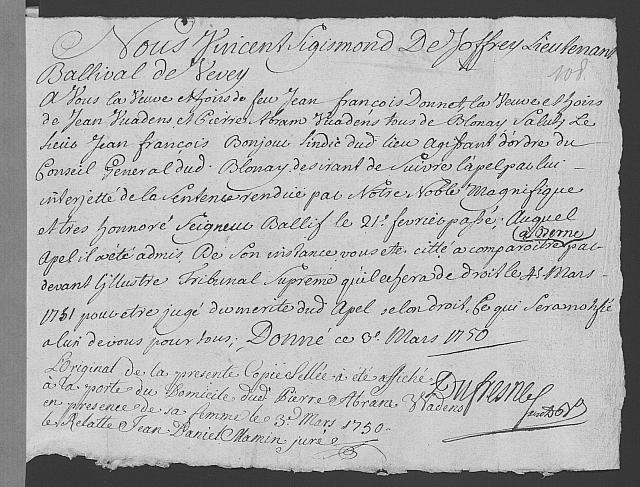 Nous Vincent Sigismond De Joffrey Lieutenant
Ballival de Vevey
108.
A Vous la Veuve et hoirs de feu Jean françois Donnet, la Veuve et hoirs
de Jean Vuadens, et Pierre Abram Vuadens tous de Blonay Salut, Le
Sieur Jean François Bonjour Sindic dud. lieu agissant d'ordre du
Conseil General dud. Blonay, desirant de Suivre l'apel par lui
interjetté de la Sentence rendüe par Notre Noble, Magnifique
et tres honnoré Seigneur Ballif le 21e. fevrier passé; Auquel
Apel il a été admis, De Son instance vous ette cittés a comparoitre par
a Berne
devant L'illustre Tribunal Supreme qu'il echera de droit le 4e Mars
1751 pour etre jugé du merite dud. Apel selon droit, Ce qui Sera notifié
a lun de vous pour tous; Donné ce 3e. Mars 1750
L'Original de la presente Copie Sellée a été affiché
à la porte du Domicile dud. Pierre Abram Wadens
en presence de sa femme le 3e. Mars 1750.
le Relatte Jean Daniel Mamin juré
Dufresne